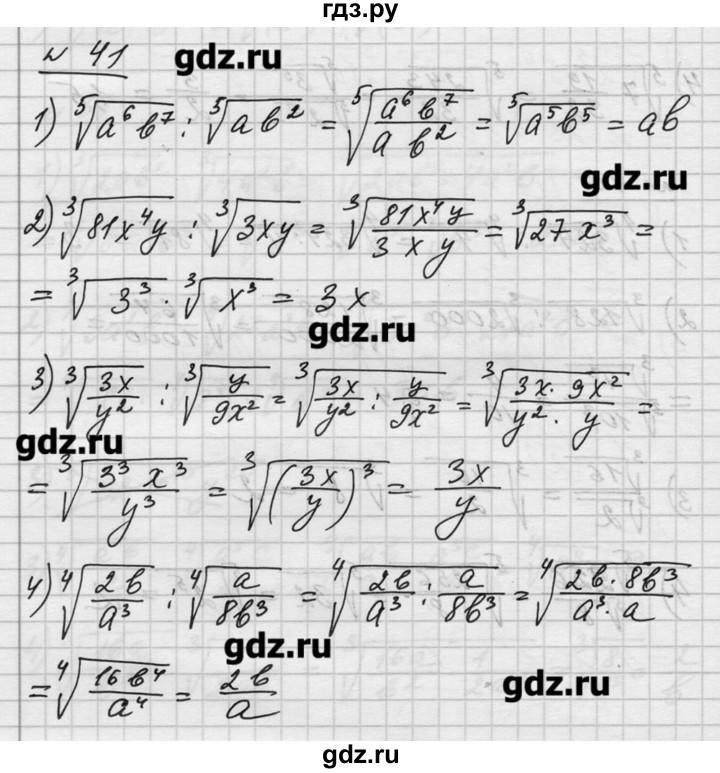 гдз.ру
№ 41
gdz.ru
1) ⁵√(a⁶b⁷) : ⁵√(ab²) = ⁵√(a⁶b⁷ / ab²) = ⁵√(a⁵b⁵) = ab
gdz.ru
2) ³√(81x⁴y) : ³√(3xy) = ³√(81x⁴y / 3xy) = ³√(27x³) =
= ³√(3³) · ³√(x³) = 3x
gdz.ru
3) ³√(3x / y²) : ³√(y / 9x²) = ³√(3x / y² : y / 9x²) = ³√(3x · 9x² / y² · y) =
gdz.ru
= ³√(3³x³ / y³) = ³√((3x / y)³) = 3x / y
4) ⁴√(2b / a³) : ⁴√(a / 8b³) = ⁴√(2b / a³ : a / 8b³) = ⁴√(2b · 8b³ / a³ · a)
gdz.ru
= ⁴√(16b⁴ / a⁴) = 2b / a
gdz.ru
gdz.ru